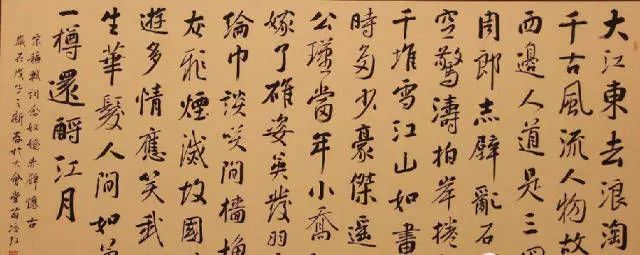 大江東去浪淘
千古風流人物故
西邊人道是三
周郎赤壁亂石
空驚濤拍岸捲
千堆雪江山如畫
時多少豪傑遙
公瑾當年小喬
嫁了雄姿英發羽
綸巾談咲間檣
灰飛煙滅故國
遊多情應笑我
生華髮人間如
一樽還酹江月
宋蘇軾詞念奴嬌赤壁懷古
歲在戊子之新春於大會堂